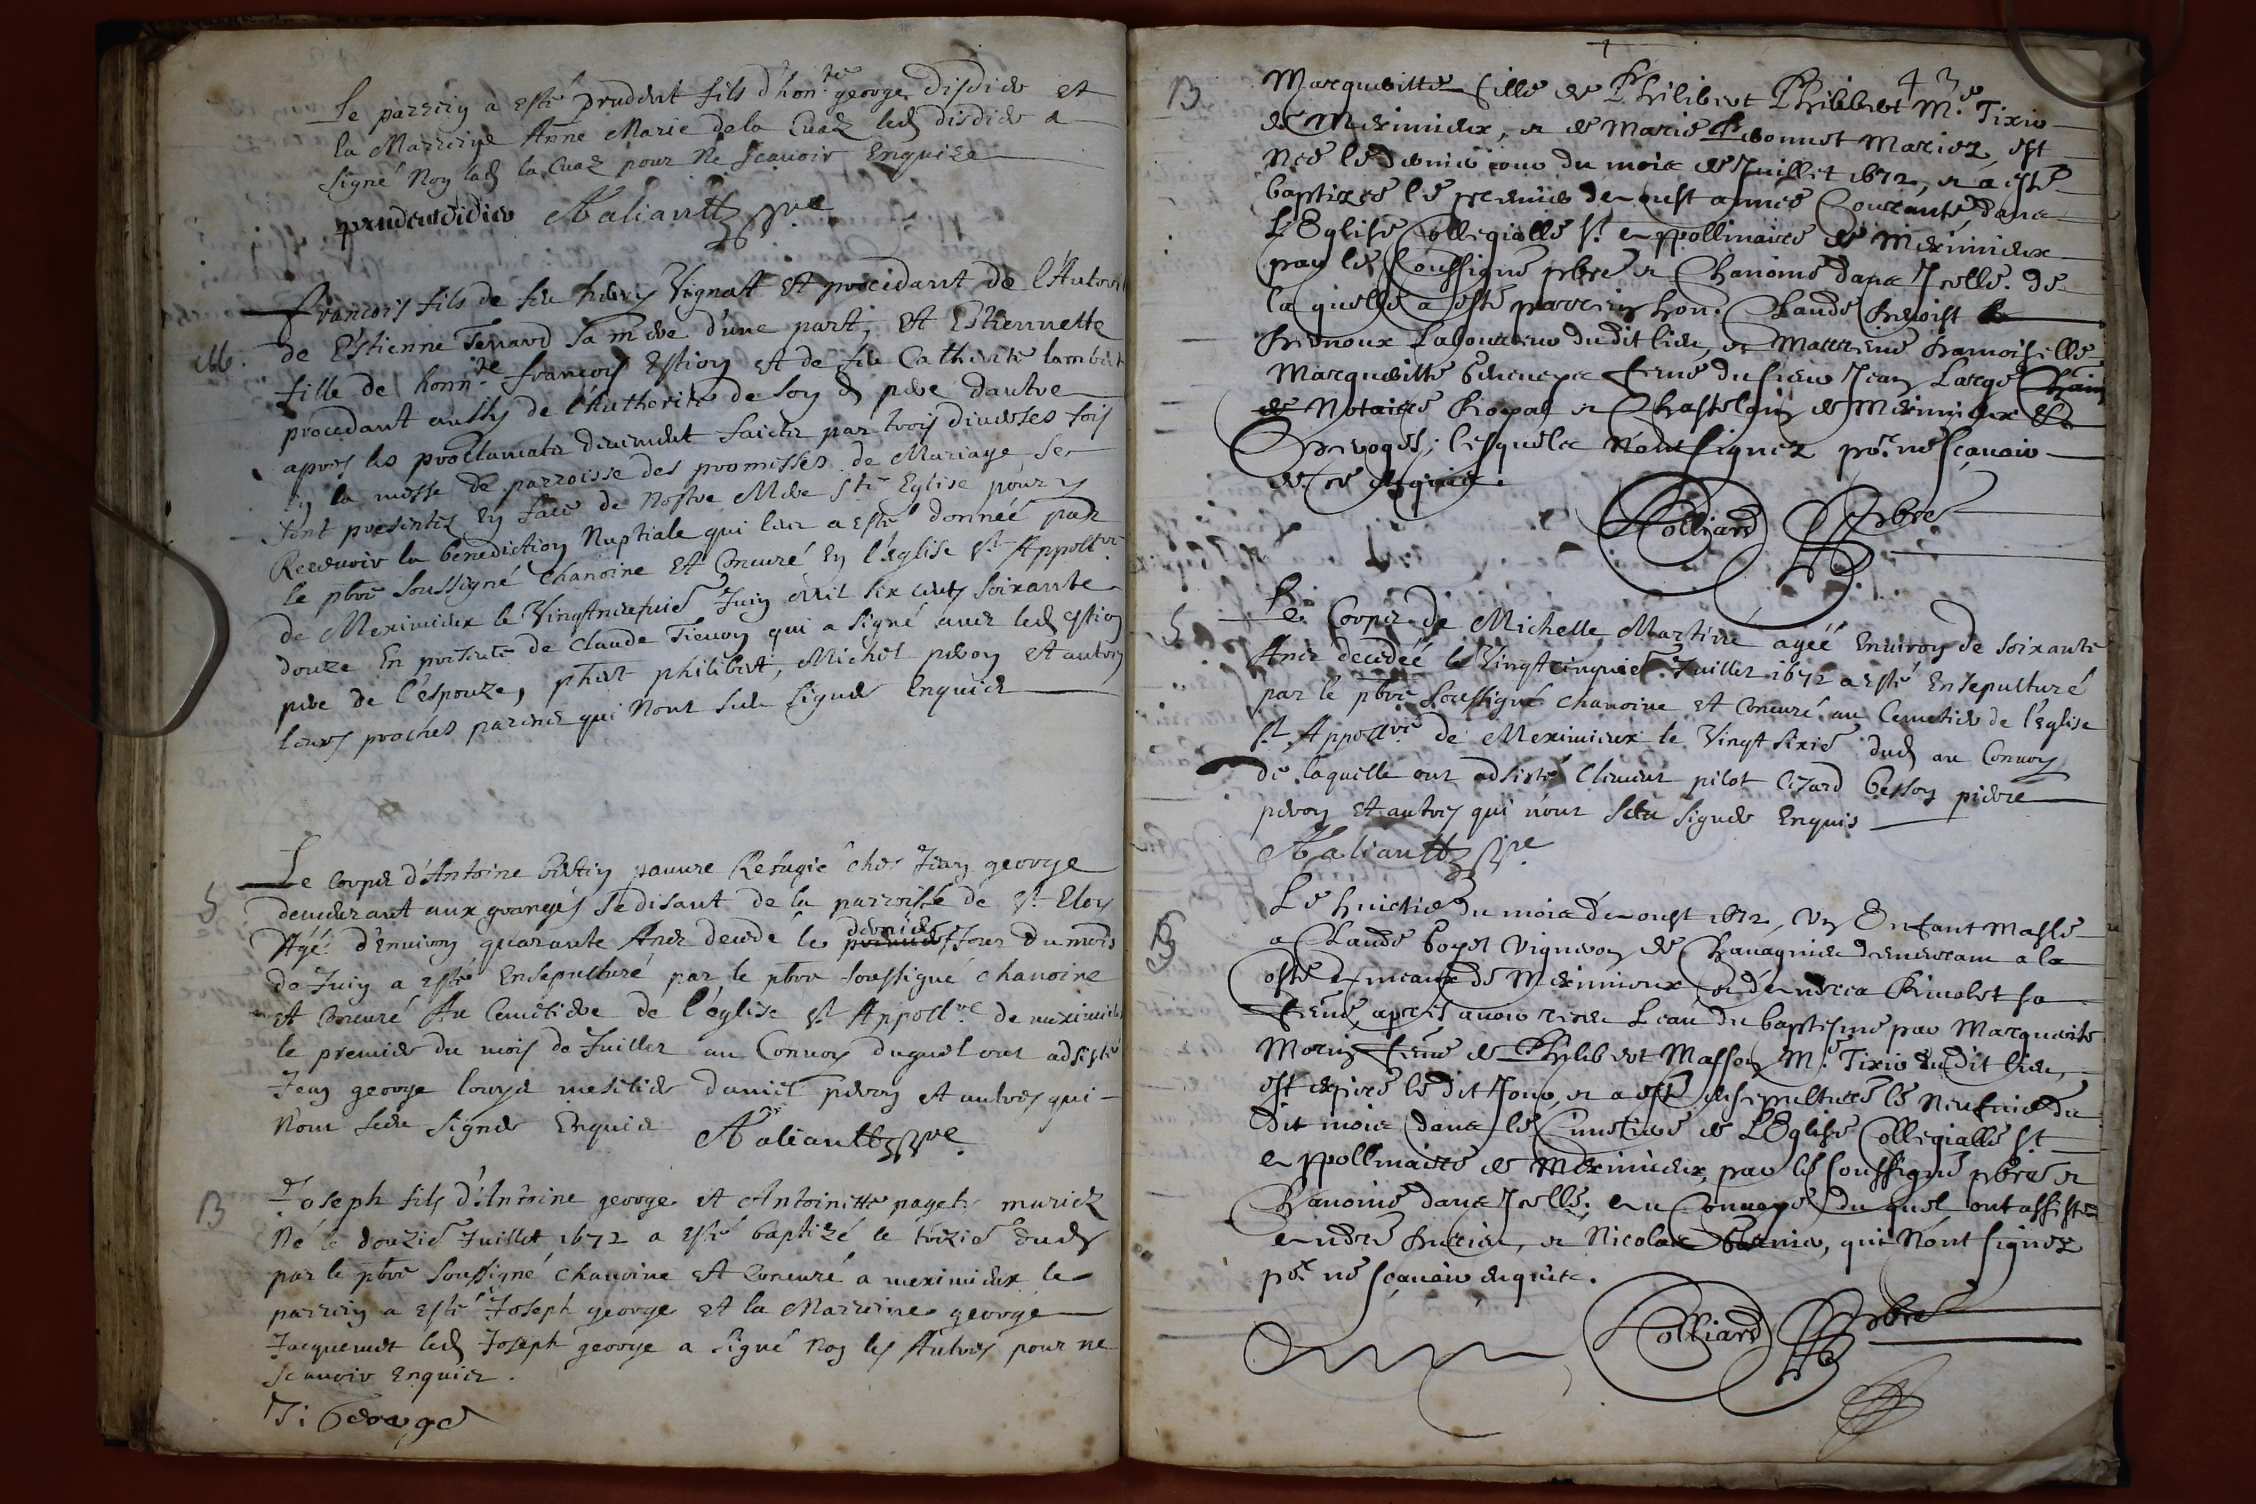 Le parrein a esté prudent fils d'hon.te george disdier et
la Marreine Anne Marie dela Cuaz led disdier a
signé non lad la Cuaz pour ne scavoir Enquize
prudent didier Aaliautt pbre
Francois fils de feu henry Vignat et procedant de l'Autorité
M.
de Estienne Tenard sa mere d'une part, et Estiennette
fille de honn.te francois Estion et de feu Catherine lambert
procedant aussy de l'Autherité de son d pere dautre
apres les proclamats deuement faictz par trois diverses fois
en la messe de parroisse des promisses de Mariage se
sont presentez en face de Nostre Mere s.te Eglise pour y
Recevoir la benediction Nuptiale qui leur a esté donneé par
le pbre soussigné chanoine et Concuré en l'eglise s.t Appoll.re
de Meximieux le Vingtneufuie Juin mil six cents soixante
douze En presence de Claude Tienon qui a signé avec led estion
pere de l'espouze, phert philibert, Michel peron et autres
leurs proches parens qui Nont sceu signer Enquis
S
Le corps d'Antoine bertin pauvre Refugié ches Jean george
demeurant aux granges se disant de la parroisse de s.t Eloy
Agé d'environ quarante Ans decedé le premier dernier Jour du mois
de Juin a esté Ensepulturé par le pbre soussigné chanoine
et Concuré Au Cemetiere de l'église s.t Appoll.re de meximieux
le premier du mois de Juillet au Convoy duquel ont adsisté
Jean george louys mestier daniel peron et autres qui
Nont sceu signer Enquis Aaliautt pbre
B
Joseph fils d'Antoine george et Antoinette paget mariez
Né le douzie Juillet 1672 a esté baptizé le treizie dud
par le pbre soussigné chanoine et Concuré a meximieux le
parrein a esté Joseph george et la Marreine george
Jacquemet led Joseph george a signé non les Autres pour ne
scavoir Enquis.
Ji George
43
B
Margueritte fille de Philibert Philibert M.e Tixier
de Meximieux, et de Marie bonnet Mariez, est
Née le dernier jour du mois de Juillet 1672, et a esté
baptizée le premier de aoust année Courante dans
L'Eglise Collegialle s.t Appollinaire de Meximieux
par le soussigné pbre et Chanoine dans Jcelle. de
la quelle a esté parrein hon. Claude benoist
Laboureur du dit lieu, et Marreine damoiselle
Margueritte feme du sieur Jean Large
Notaire Royal et Chastelain de Meximieux
lesquels Nont signez po.r ne sçavoir
de ce enquis.
Colliard pbre
S
Le Corps de Michelle Martine ageé Environ de soixante
Ans decedeé le Vingtcinquie Juillet 1672 a esté Ensepulturé
par le pbre soussigné chanoine et Concuré au Cemetiere de l'Eglise
s.t Appoll.re de Meximieux le Vingt sixie dud au Convoy
de laquelle ont adsisté Clement pilot Cezard besson pierre
peron et autres qui n'ont sceu signer Enquis
Aaliautt pbre
B
S
Le huictie du mois de aoust 1672, Un Enfant Masle
a Claude boyet Vigneron de Chavagnieu demeurant a la
coste de meaux de Meximieux, et de sa
feme, apres avoir receu L'eau du baptisme par Marguerite
Morin feme de Philibert Masson M.e Tixier dudit lieu,
est expiré le dit Jour, et a esté ensepulturé le Neufuie du
dit mois dans le Cimetiere de L'Eglise Collegialle s.t
Appollinaire de Meximieux, par le soussigné pbre et
Chanoine dans Jcelle. au Convoye du quel ont assistez
André et Nicolas qui N'ont signez
po.r ne sçavoir enquis.
Colliard pbre